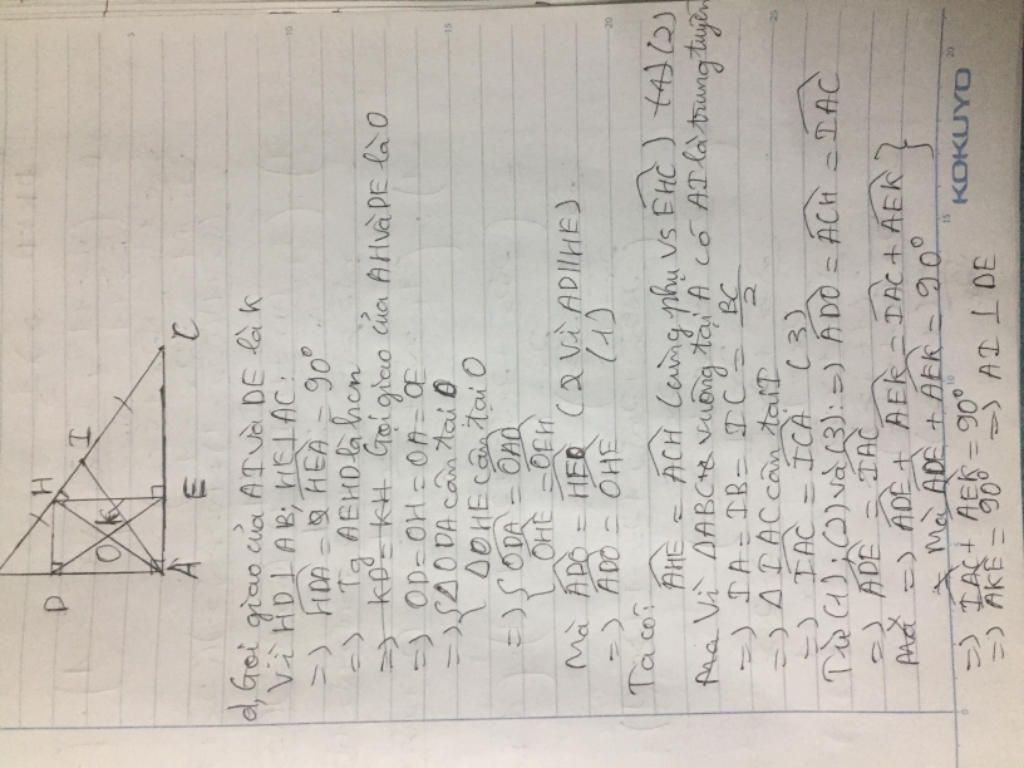 D
H
I
O
K
A
E
C
d, Gọi giao của AI và DE là K
Vì HD⊥AB; HE⊥AC.
=) HDA = HEA = 90°
=) Tg AEHD là hcn
=) KD = KH Gọi giao của AH và DE là O
=) OD = OH = OA = OE
=) { Δ ODA cân tại O
Δ OHE cân tại O
=) { ODA = OAD
OHE = OEH
Mà ADO = HEO (2 vì AD//HE)
=) ADO = OHE (1)
Ta có: AHE = ACH (cùng phụ vs EHC) (2)
Ma Vì ΔABC vuông tại A có AI là trung tuyến
=) IA = IB = IC = BC/2
=) Δ IAC cân tại I
=) IAC = ICA (3)
Từ (1), (2) và (3) =) ADO = ACH = IAC
=) ADE = IAC
Mà =) ADE + AEK = IAC + AEK }
Mà ADE + AEK = 90°
=) IAC + AEK = 90°
=) AKE = 90° =) AI ⊥ DE
KOKUYO
5
10
15
20
25
0
10
15
20